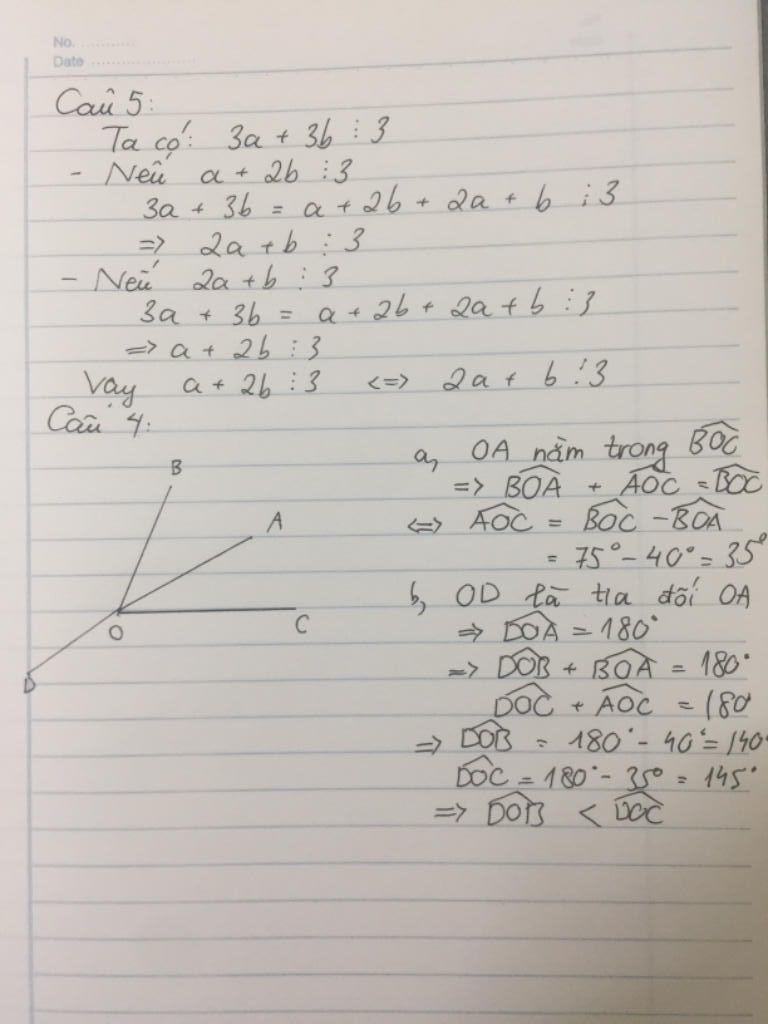 No. ............
Date .....................
Câu 5:
Ta có: 3a + 3b ⋮ 3
- Nếu a + 2b ⋮ 3
3a + 3b = a + 2b + 2a + b ⋮ 3
=> 2a + b ⋮ 3
- Nếu 2a + b ⋮ 3
3a + 3b = a + 2b + 2a + b ⋮ 3
=> a + 2b ⋮ 3
Vậy a + 2b ⋮ 3 <=> 2a + b ⋮ 3
Câu 4:
B
A
O
C
D
a, OA nằm trong \widehat{BOC}
=> \widehat{BOA} + \widehat{AOC} = \widehat{BOC}
<=> \widehat{AOC} = \widehat{BOC} - \widehat{BOA}
= 75° - 40° = 35°
b, OD là tia đối OA
=> \widehat{DOA} = 180°
=> \widehat{DOB} + \widehat{BOA} = 180°
\widehat{DOC} + \widehat{AOC} = 180
=> \widehat{DOB} = 180° - 40° = 140°
\widehat{DOC} = 180° - 35° = 145°
=> \widehat{DOB} < \widehat{DOC}